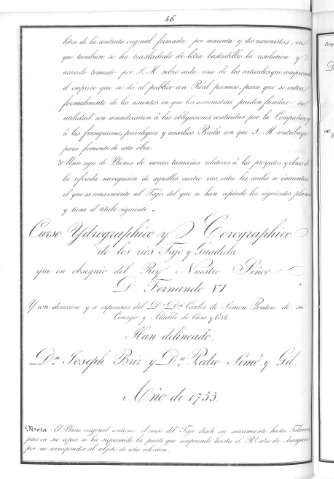 46
letra de la contrata original firmada por noventa y dos accionistas, en
que tambien se ha trasladado de letra bastardilla la resolucion y
acuerdo tomado por S. M. sobre cada una de las
el impreso que se dió al publico con Real permiso, para que se entere
formalmente de los asuntos en que los accionistas pueden fundar su
utilidad con consideracion á las obligaciones contraidas por la Compañia y
á las franquicias, privilegios y auxilios Reales con que S. M. contribuye
para fomento de esta obra.
de Planos de varios tamaños relativos á los proyectos y obras de
la referida navegacion de aquellos cuatro rios, entre los cuales se encuentra
el que es nacimiento al Tajo, del que se han copiado los siguientes planos
y tiene el titulo siguiente.
Curso Ydrographico y Chorographico
de los rios Tajo y Guadiela
que en obsequio del Rey Nuestro Señor
D. Fernando VI
Y con direccion y a expensas del Dn. Carlos de Simon Pontero de su
Consejo y Alcalde de Casa y Corte
Han delineado
Dn. Joseph Briz y Dn. Pedro Simó y Gil.
Año de 1755
Nota. El Plano original contiene el curso del Tajo desde su nacimiento hasta
pero en su copia se ha suprimido la parte que comprende hasta el Rl. sitio de Aranjuez
por no corresponder al objeto de esta coleccion.